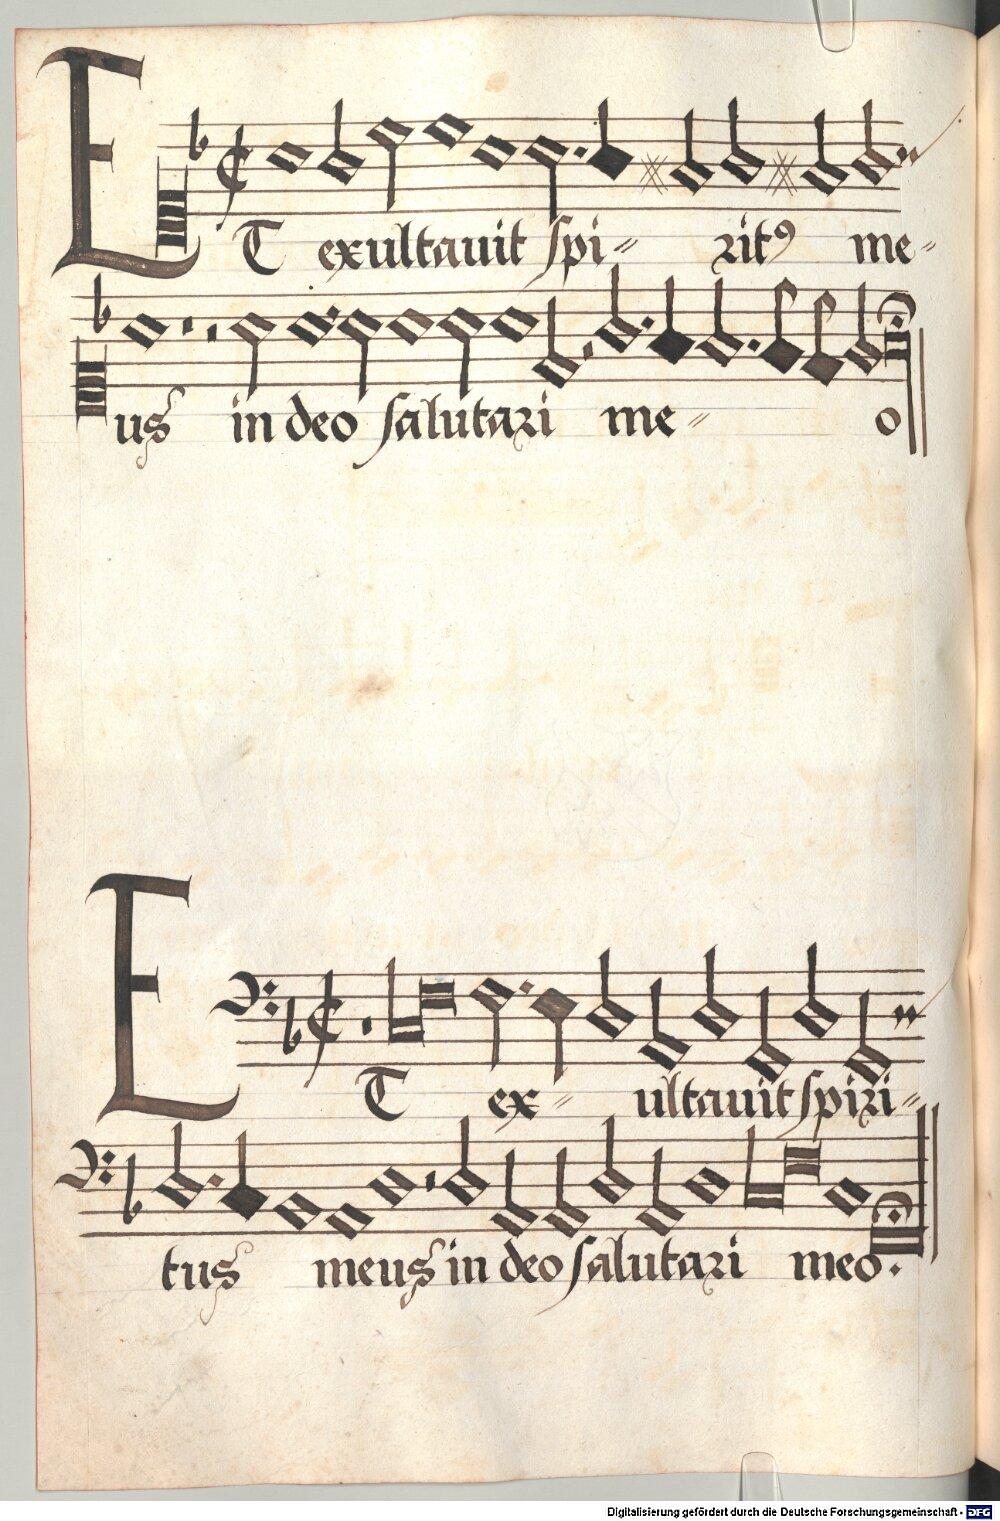 ET exultauit spi〃 ritꝰ me〃
us in deo salutari me〃 o
ET ex〃 ultauit spiri〃
tus meus in deo salutari meo.
Digitalisierung gefördert durch die Deutsche Forschungsgemeinschaft - DFG